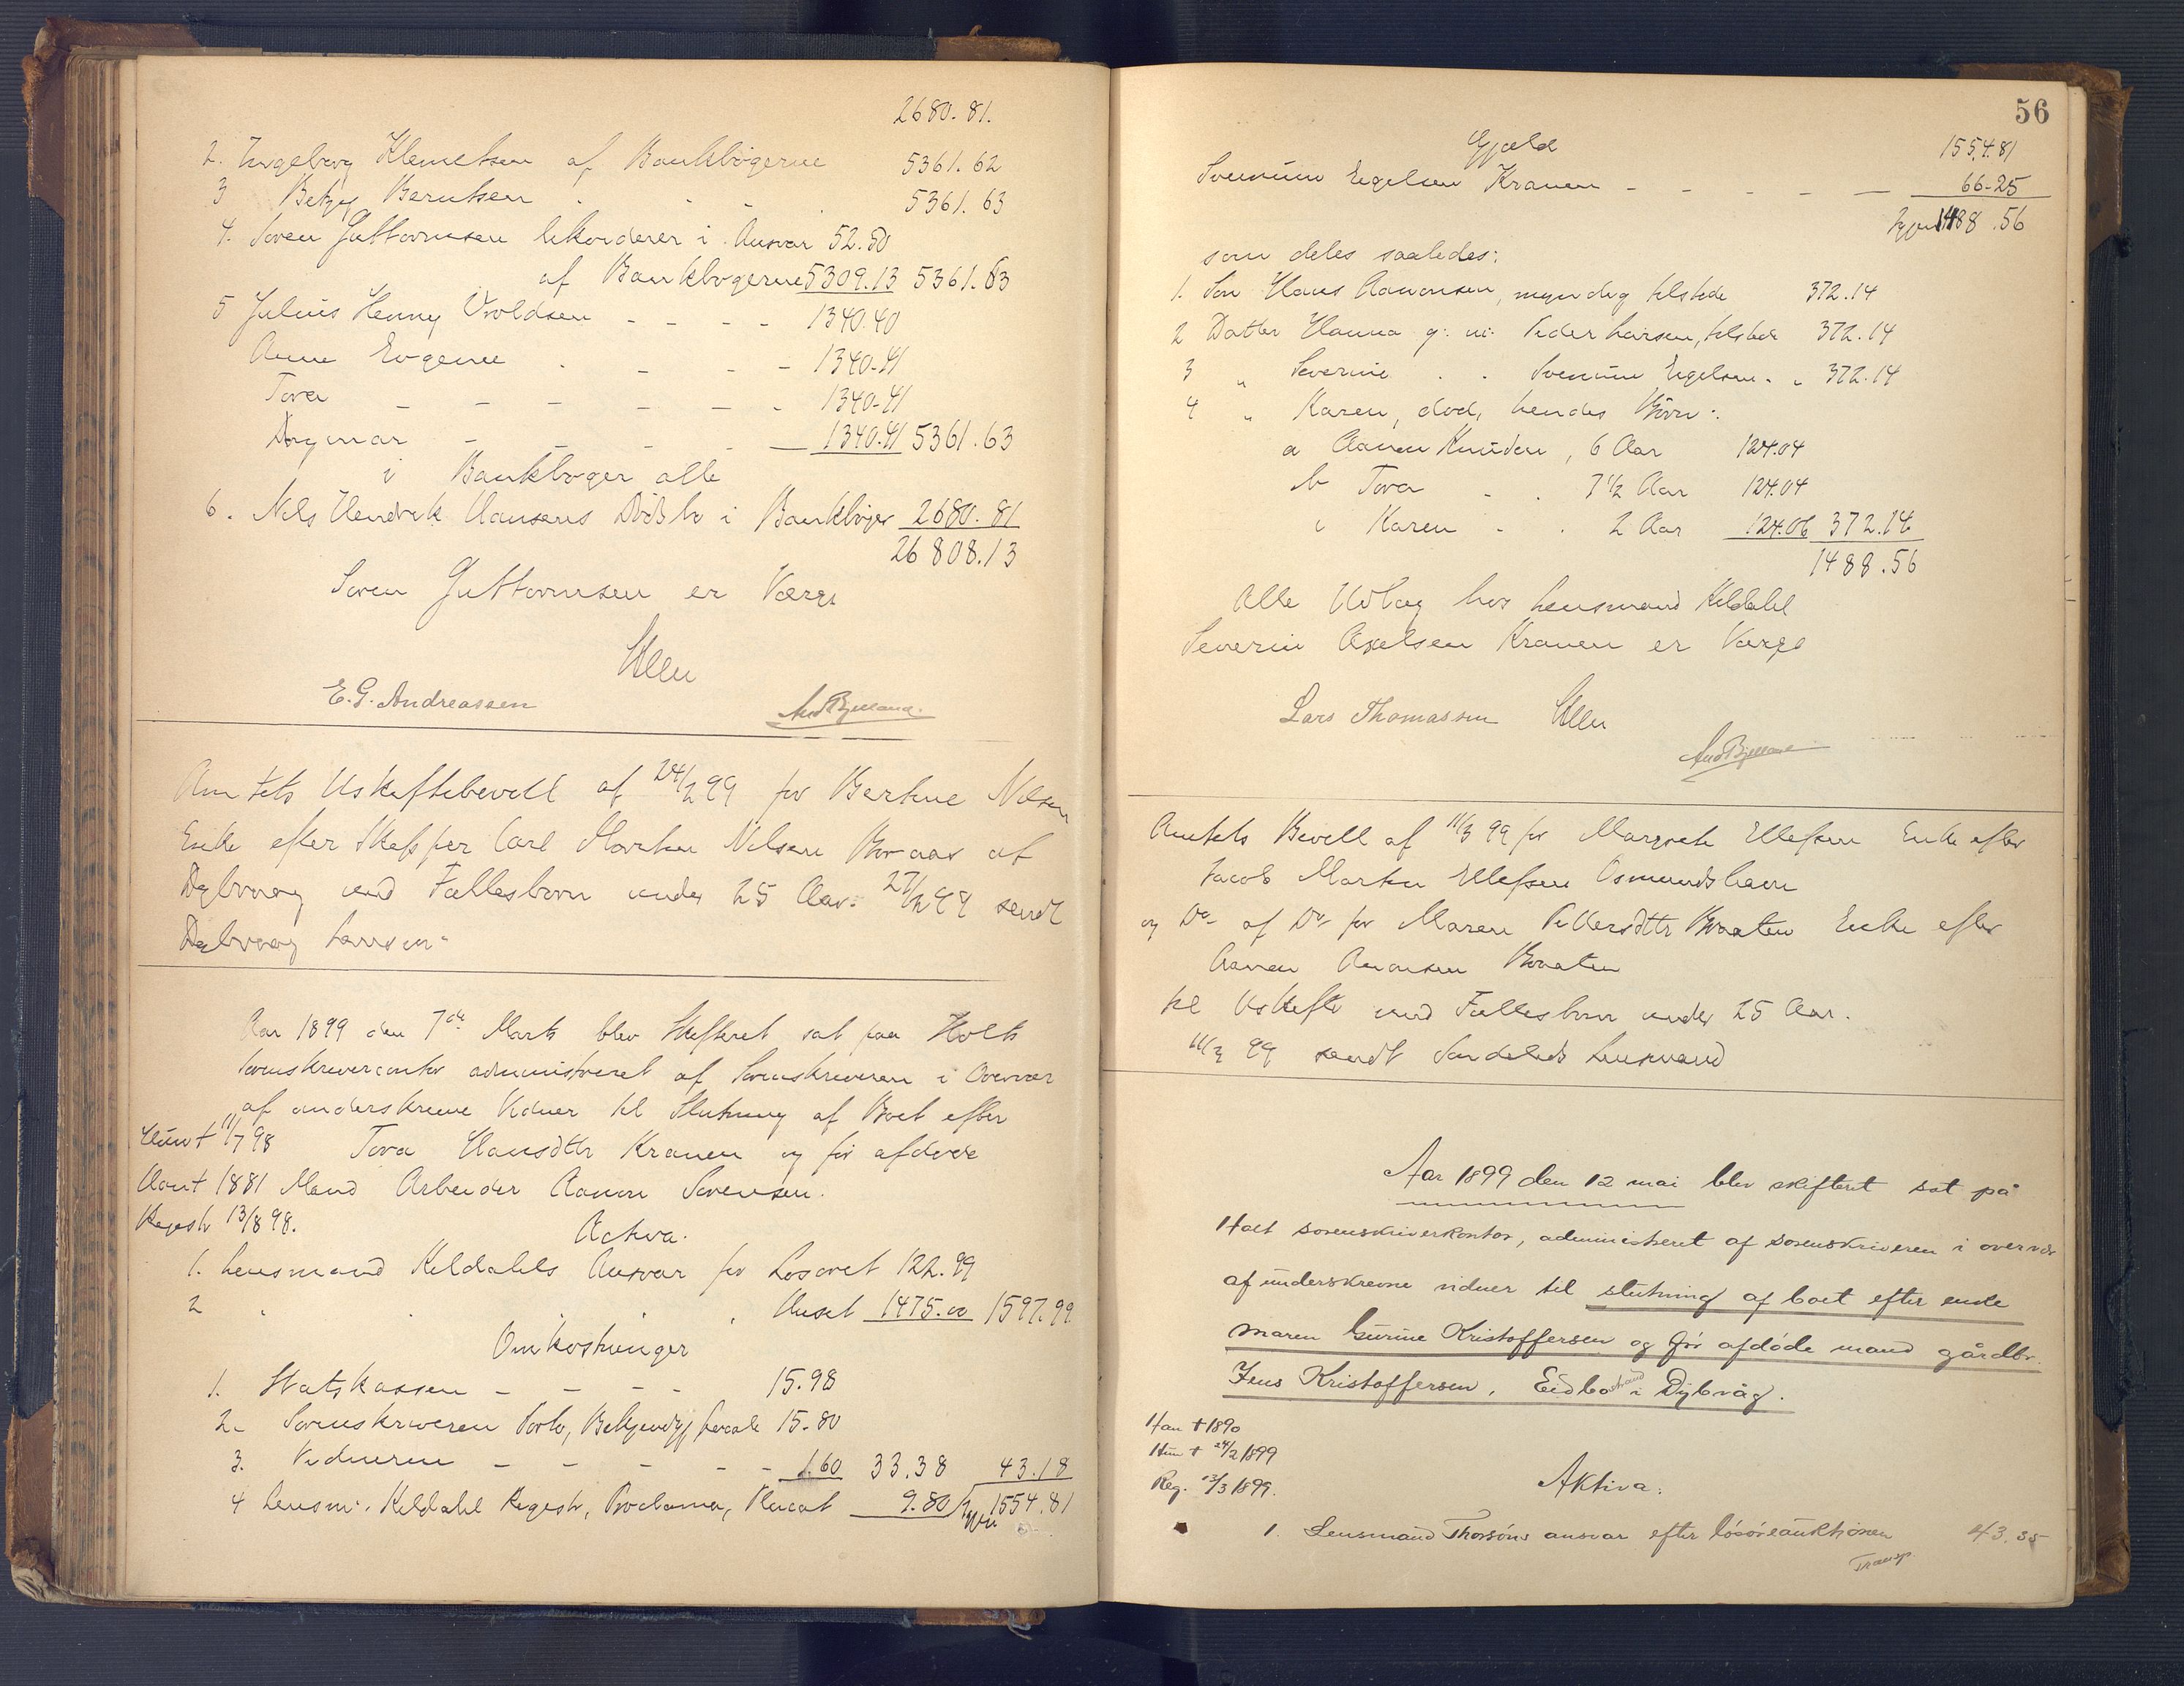 2680.81.
2. Ingeborg Klemetsen af Bankbøgerne 5361.62
3 Betzy Berntsen . . . . 5361.63
4. Søren Guttormsen likviderer i Ansvar 52.50
af Bankbøgerne 5309.13 5361.63
5 Julius Henny Uvoldsen - - - - 1340.40
Anne Eugenie . - - - 1340.41
Tora - - - - - - - 1340-41
Dagmar - - - - - 1340.41 5361.63
i Bankbøger alle
6. Nils Hendrik Hansens Dødsbo i Bankbøger 2680.81
26808.13
Søren Guttormsen er Værge
E.G. Andreassen
Amtets Uskiftebevill af 24/2 99 for Bertine Nilsen
Enke efter Skipper Carl Martin Nilsen Boraas af
Dybvaag med Fællesbørn under 25 Aar. 27/2 99 sendt
Dybvaag Lensm.
Aar 1899 den 7de Marts blev Skifteret sat paa Holts
Sorenskrivercontor administreret af Sorenskriveren i Overvær
af underskrevne Vidner til Slutning af Boet efter
Hun † 11/7 98 Tora Hansdtr Kranen og før afdøde
Han † 1881 Mand Arbeider Aanon Sørensen.
Registr 13/8 98.
Activa.
1. Lensmand Kildahls Ansvar for Løsøret 122.99
2 . . . . Huset 1475.00 1597.99
Omkostninger
1. Statskassen - - - - 15.98
2. Sorenskriveren Porto, Bekjendtgj. 15.80
3. Vidnerne - - - - - 1.60 33.38 43.18
4 Lensm. Kildahl Registr, Proclama, Placat 9.80 Igjen 1554.81
56
Gjæld 1554.81
Svenum Eegelsen Kranen - - - - - 66-25
Igjen 1488.56
som deles saaledes:
1. Søn Hans Aanonsen, myndig tilstede 372.14
2 Datter Hanna g. m. Peder Larsen, tilstede 372.14
3 " Severine . . Svenum Eegelsen. " 372.14
4 " Karen, død, hendes Børn:
a Aanen Knudsen, 6 Aar 124.04
b Tora - . 7 1/2 Aar 124.04
c Karen - . 2 Aar 124.06 372.14
1488.56
Alle Udlæg hos Lensmand Kildahl
Severin Axelsen Kranen er Værge
Lars Thomassen
Amtets Bevill af 11/3 99 for Margrete Ellefsen Enke efter
Jacob Martin Ellefsen Osmundshavn
og Do af Do for Maren Pettersdttr Braaten Enke efter
Aanen Aanonsen Braaten
til Uskifte med Fællesbørn under 25 Aar.
11/3 99 sendt Søndeleds Lensmand
Aar 1899 den 12 mai blev skifteret sat på
Holt sorenskriverkontor, administreret af sorenskriveren i overvær
af underskrevne vidner til slutning af boet efter enke
Maren Gurine Kristoffersen og før afdøde mand gårdbr.
Jens Kristoffersen, Eidbostrand i Dybvåg.
Han † 1890
Hun † 24/2 1899
Reg. 13/3 1899.
Aktiva:
1. Lensmand Thorsöns ansvar efter løsøreauktionen 43.35
Transp.